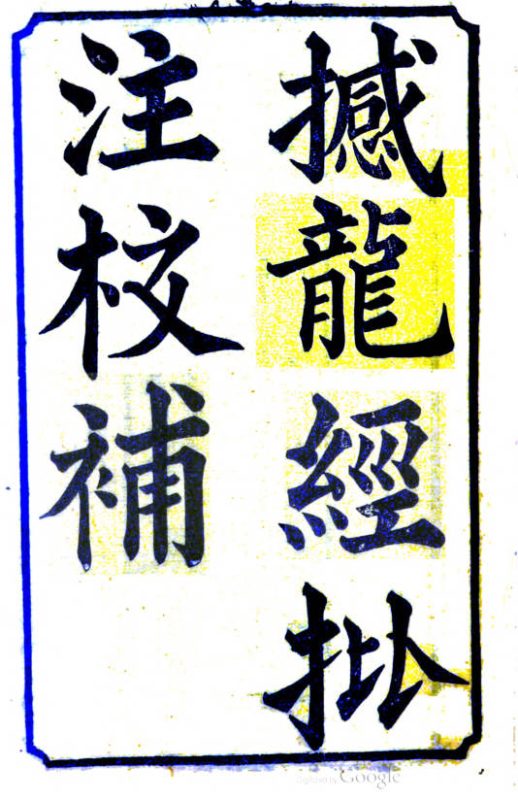 撼龍經批
注校補
Digitized by Google